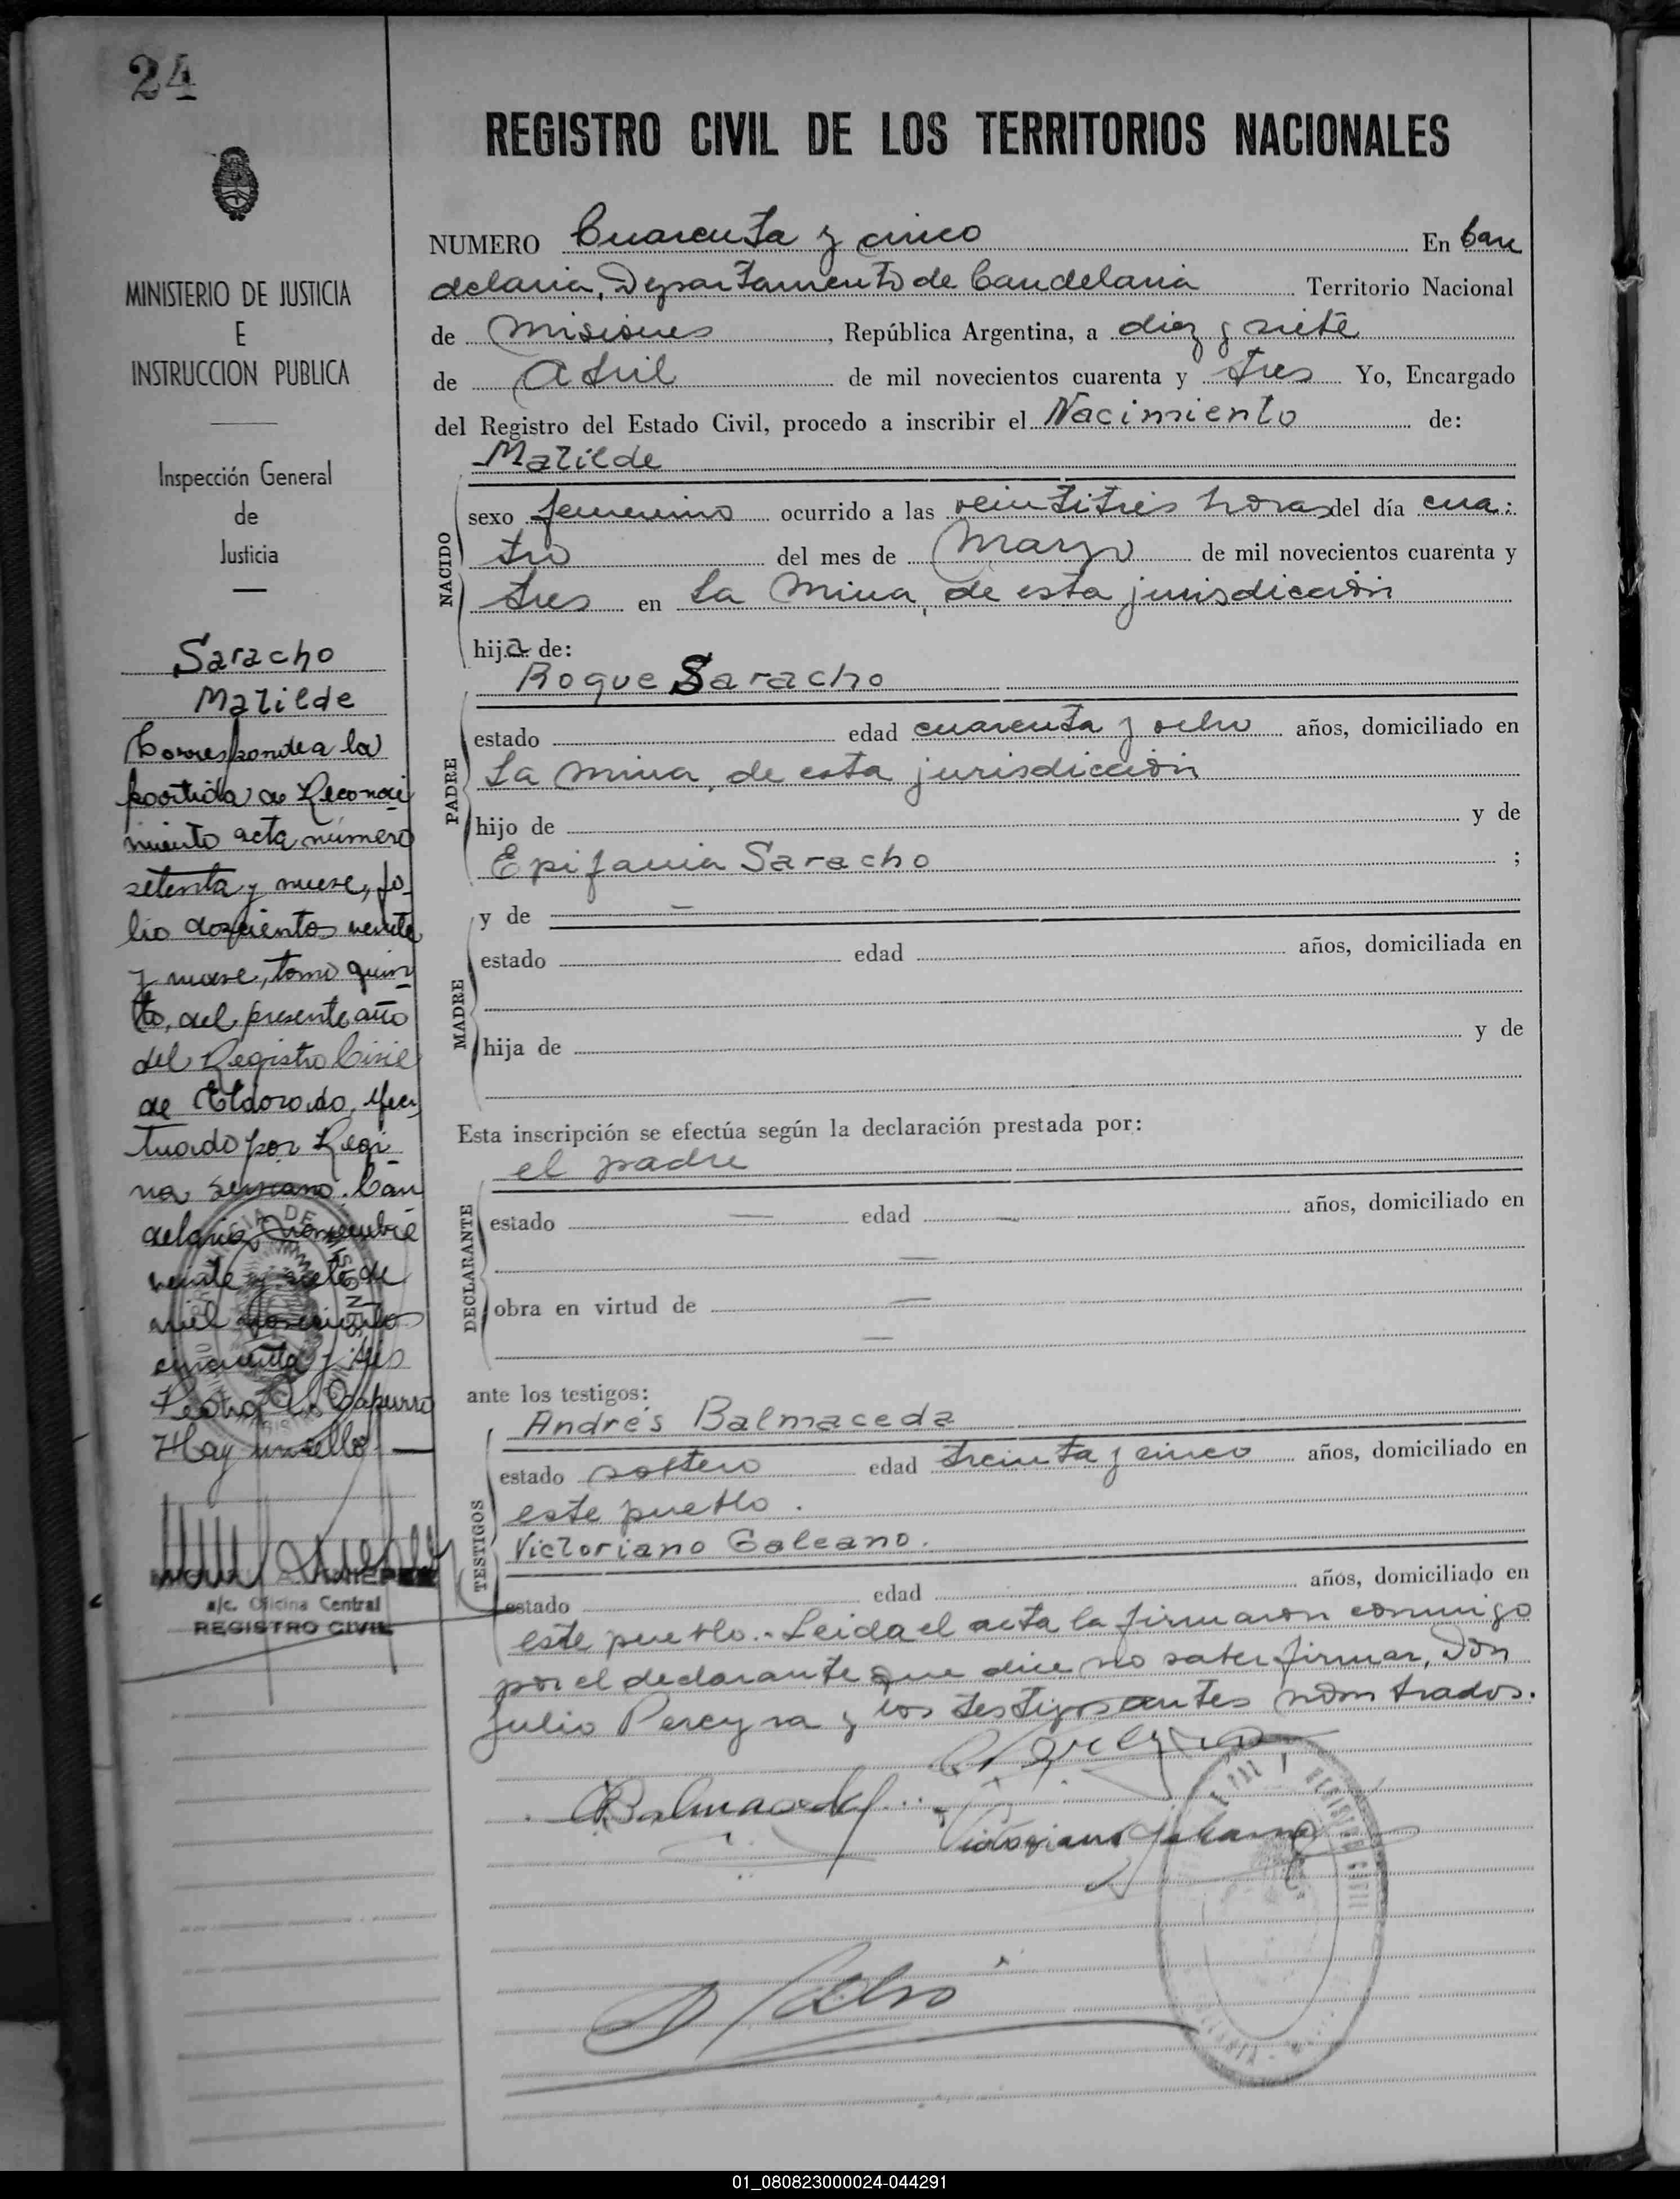 24
MINISTERIO DE JUSTICIA
E
INSTRUCCION PUBLICA
Inspección General
de
Justicia
Saracho
Matilde
Corresponde a la
partida de Reconoci
miento acta número
setenta y nueve, fo-
lio doscientos veinte
y nueve, tomo quin-
to, del presente año
del Registro Civil
de Eldorado, efec
tuado por Regi-
na Serrano. Can
delaria, noviembre
veinte y siete de
mil novecientos
cincuenta y tres
Hay un sello
a/c. Oficina Central
REGISTRO CIVIL
REGISTRO CIVIL DE LOS TERRITORIOS NACIONALES
NUMERO Cuarenta y cinco En Can
delaria, Departamento de Candelaria Territorio Nacional
de Misiones, República Argentina, a diez y siete
de Abril de mil novecientos cuarenta y tres Yo, Encargado
del Registro del Estado Civil, procedo a inscribir el Nacimiento de:
Matilde
NACIDO
sexo femenino ocurrido a las veintitrés horas del día cua:
tro del mes de Marzo de mil novecientos cuarenta y
tres en La Mina, de esta jurisdicción
hija de:
Roque Saracho
PADRE
estado edad cuarenta y ocho años, domiciliado en
La Mina, de esta jurisdicción
hijo de y de
Epifania Saracho ;
y de —
MADRE
estado edad años, domiciliada en
hija de y de
Esta inscripción se efectúa según la declaración prestada por:
el padre
DECLARANTE
estado — edad — años, domiciliado en
—
obra en virtud de —
—
ante los testigos:
Andrés Balmaceda
TESTIGOS
estado soltero edad treinta y cinco años, domiciliado en
este pueblo.
Victoriano Galeano.
estado edad años, domiciliado en
este pueblo.- Leida el acta la firmaron conmigo
por el declarante que dice no saber firmar, Don
Julio Pereyra y los testigos antes nombrados.
Balmaceda
Victoriano Galeano
01_080823000024-044291